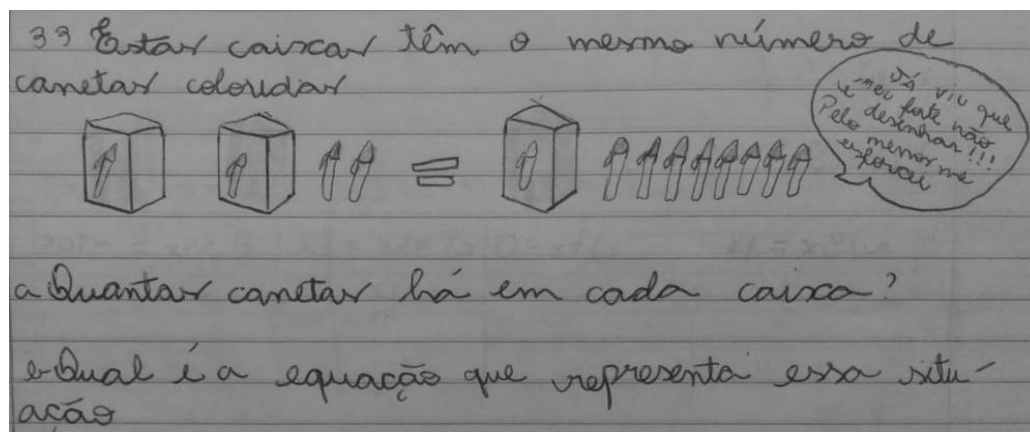 33 Estas caixas têm o mesmo número de
canetas coloridas
Já viu que
meu forte não
é desenhar!!!
Pelo menos me
esforcei
=
a Quantas canetas há em cada caixa?
b Qual é a equação que representa essa situ-
ação